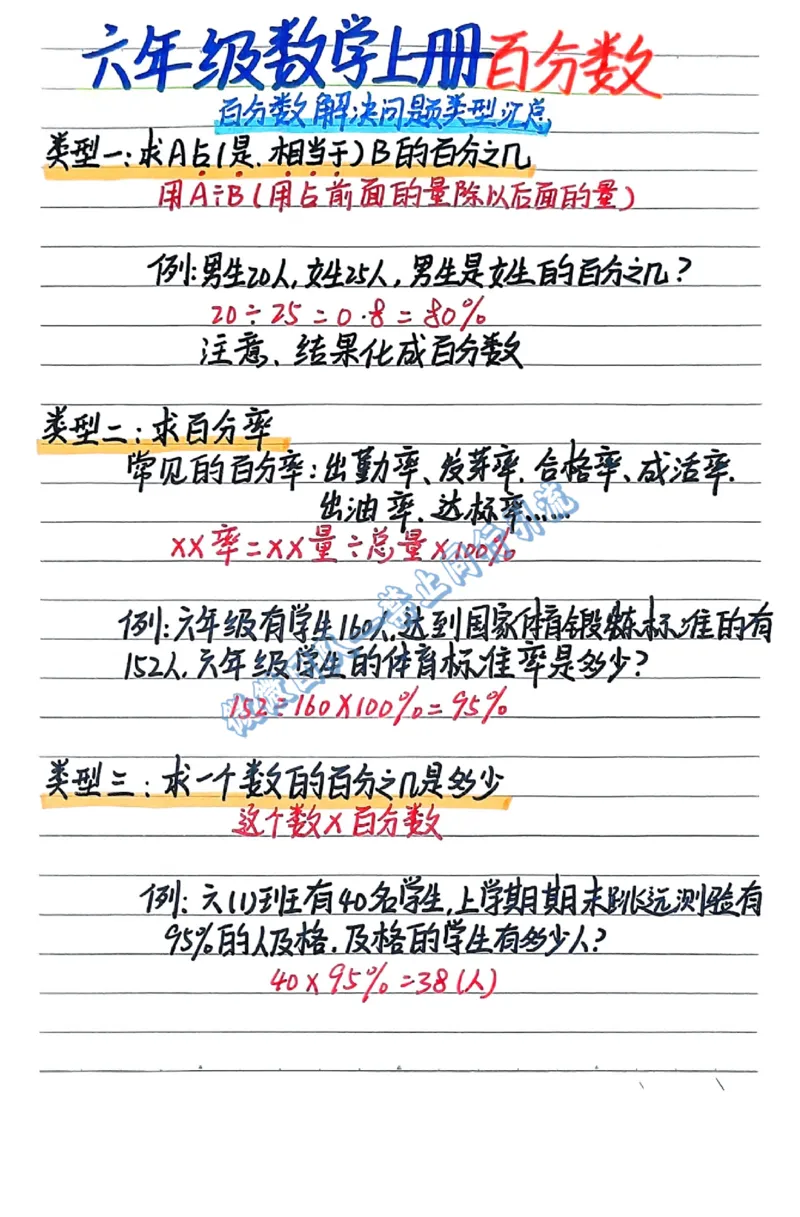 六年级数学上册百分数
百分数解决问题类型汇总
类型一:求A占(是.相当于)B的百分之几
用A÷B(用占前面的量除以后面的量)
例:男生20人,女生25人,男生是女生的百分之几?
20÷25=0.8=80%
注意、结果化成百分数
类型二:求百分率
常见的百分率:出勤率、发芽率.合格率、成活率.
出油率.达标率……
××率=××量÷总量×100%
例:六年级有学生160人,达到国家体育锻炼标准的有
152人,六年级学生的体育标准率是多少?
152÷160×100%=95%
类型三:求一个数的百分之几是多少
这个数×百分数
例:六(1)班有40名学生,上学期期末跳远测验有
95%的人及格.及格的学生有多少人?
40×95%=38(人)